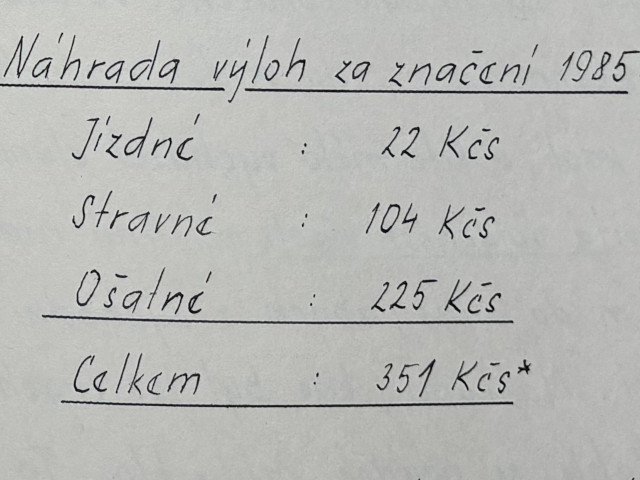 Náhrada výloh za značení 1985
Jízdné : 22 Kčs
Stravné : 104 Kčs
Ošatné : 225 Kčs
Celkem : 351 Kčs*